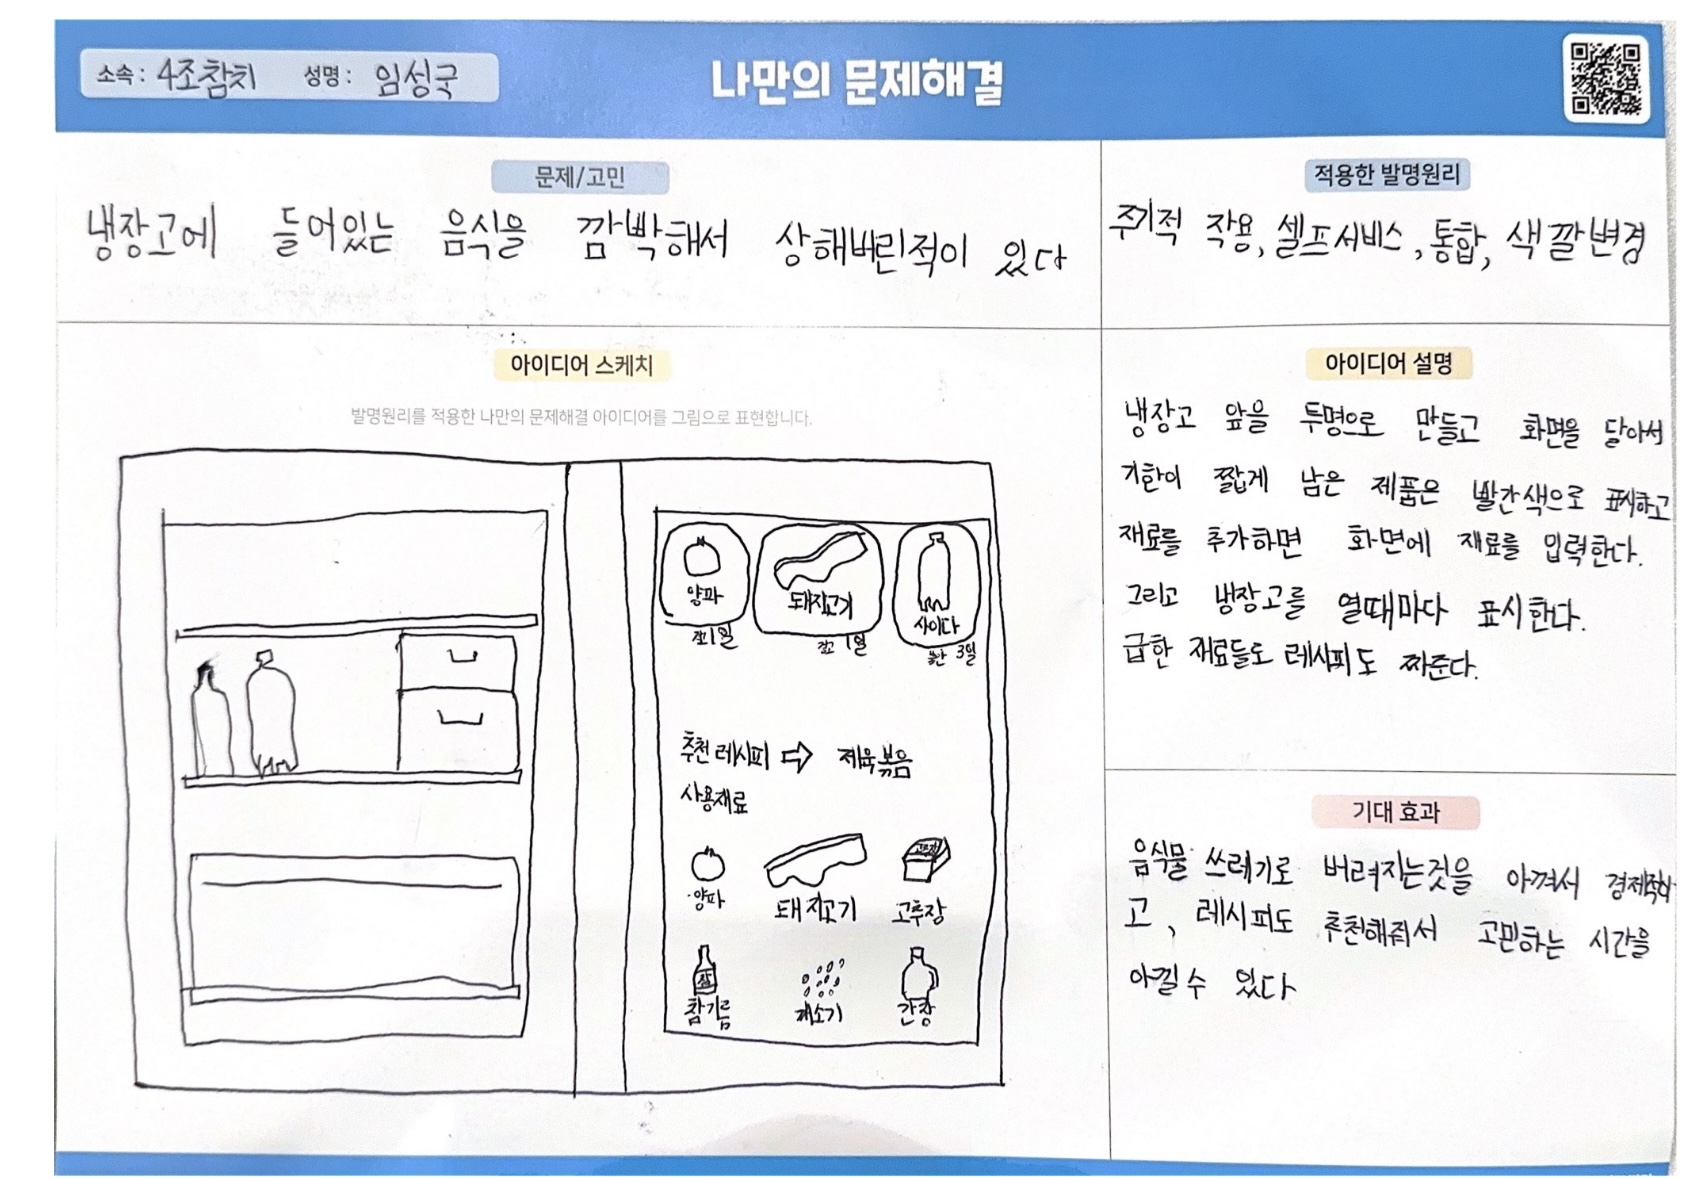 소속 : 4조참치 성명 : 임성국
나만의 문제해결
문제/고민
냉장고에 들어있는 음식을 깜박해서 상해버린적이 있다
적용한 발명원리
주기적 작용, 셀프서비스, 통합, 색깔변경
아이디어 스케치
발명원리를 적용한 나만의 문제해결 아이디어를 그림으로 표현합니다.
양파 돼지고기 사이다
1일 1일 3일
추천 레시피 ⇨ 제육볶음
사용재료
양파 돼지고기 고추장
참기름 간장
아이디어 설명
냉장고 앞을 투명으로 만들고 화면을 달아서
기한이 짧게 남은 제품은 빨간색으로 표시하고
재료를 추가하면 화면에 재료를 입력한다.
그리고 냉장고를 열때마다 표시한다.
급한 재료들도 레시피도 짜준다.
기대 효과
음식물 쓰레기로 버려지는것을 아껴서 경제적이
고, 레시피도 추천해줘서 고민하는 시간을
아낄수 있다